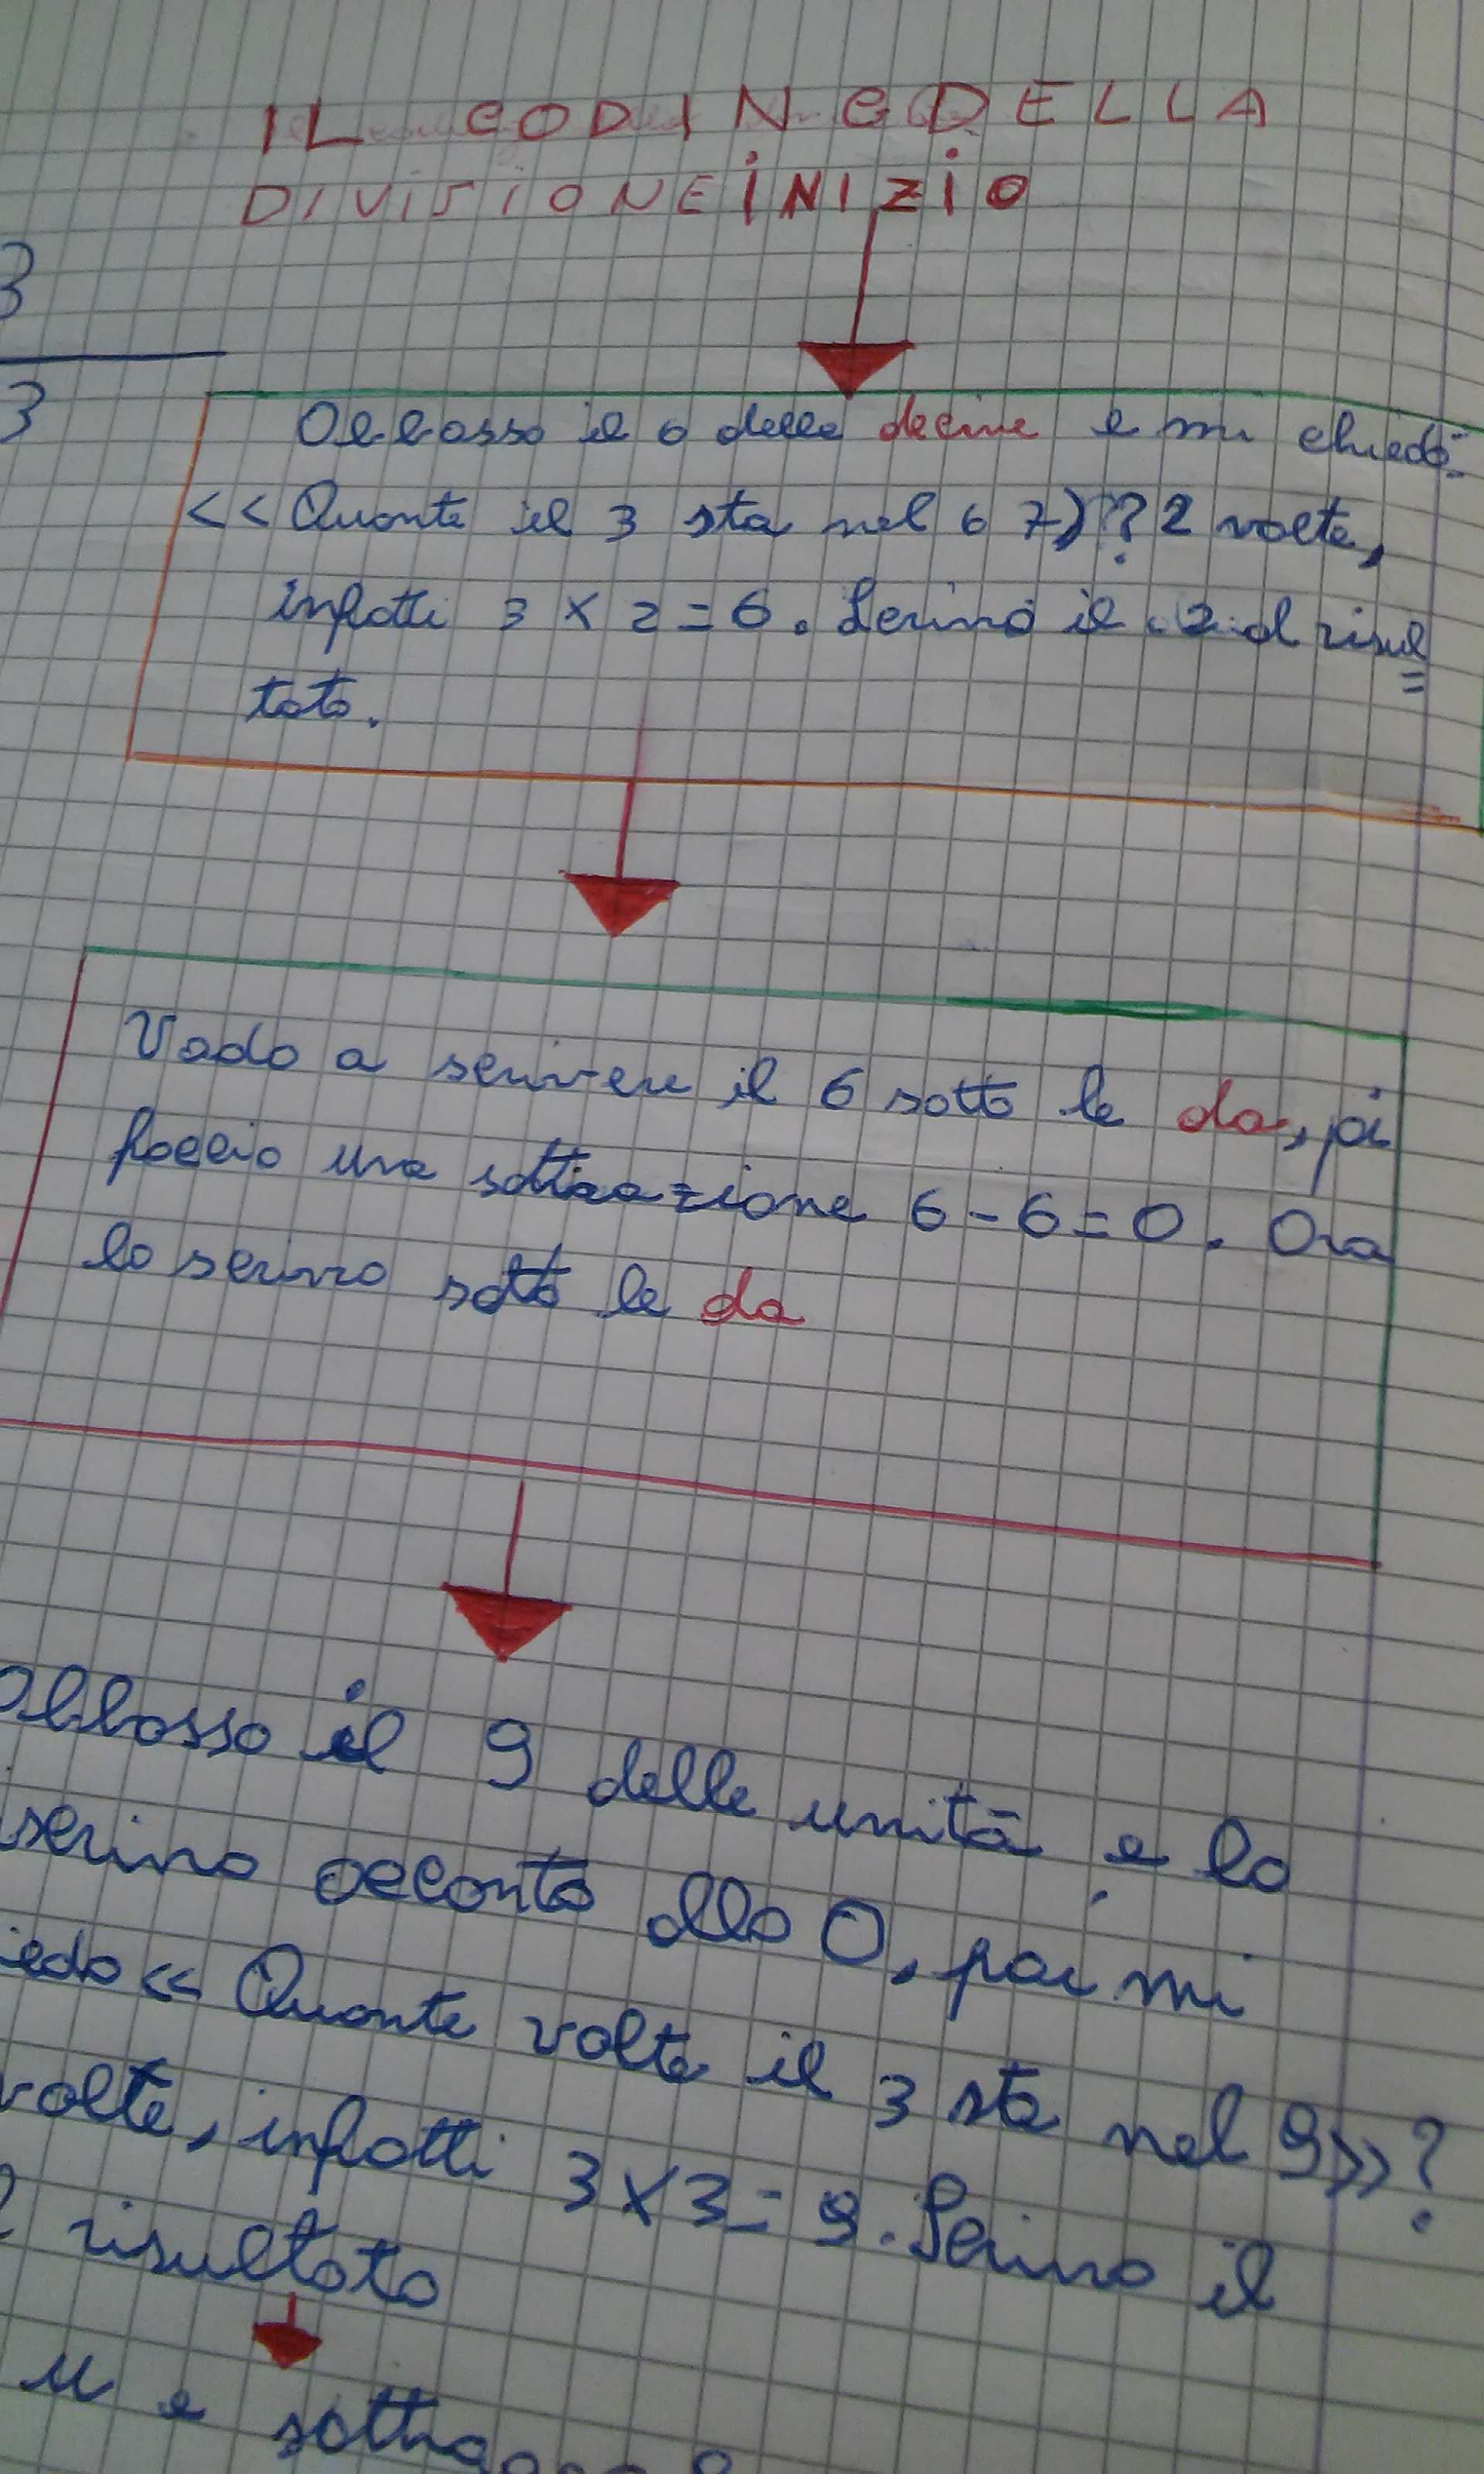 IL CODING DELLA
DIVISIONE INIZIO
3
3
Abbasso il 6 delle decine e mi chiedo:
<< Quante il 3 sta nel 6 7)? 2 volte,
infatti 3 x 2 = 6. Scrivo il 2 al risul
=
tato.
Vado a scrivere il 6 sotto le da, poi
faccio una sottrazione 6 - 6 = 0. Ora
lo scrivo sotto le da
Abbasso il 9 delle unità e lo
scrivo accanto allo 0, poi mi
iedo << Quante volte il 3 sta nel 9 >>?
volte, infatti 3 X 3 = 9. Scrivo il
risultato
u e